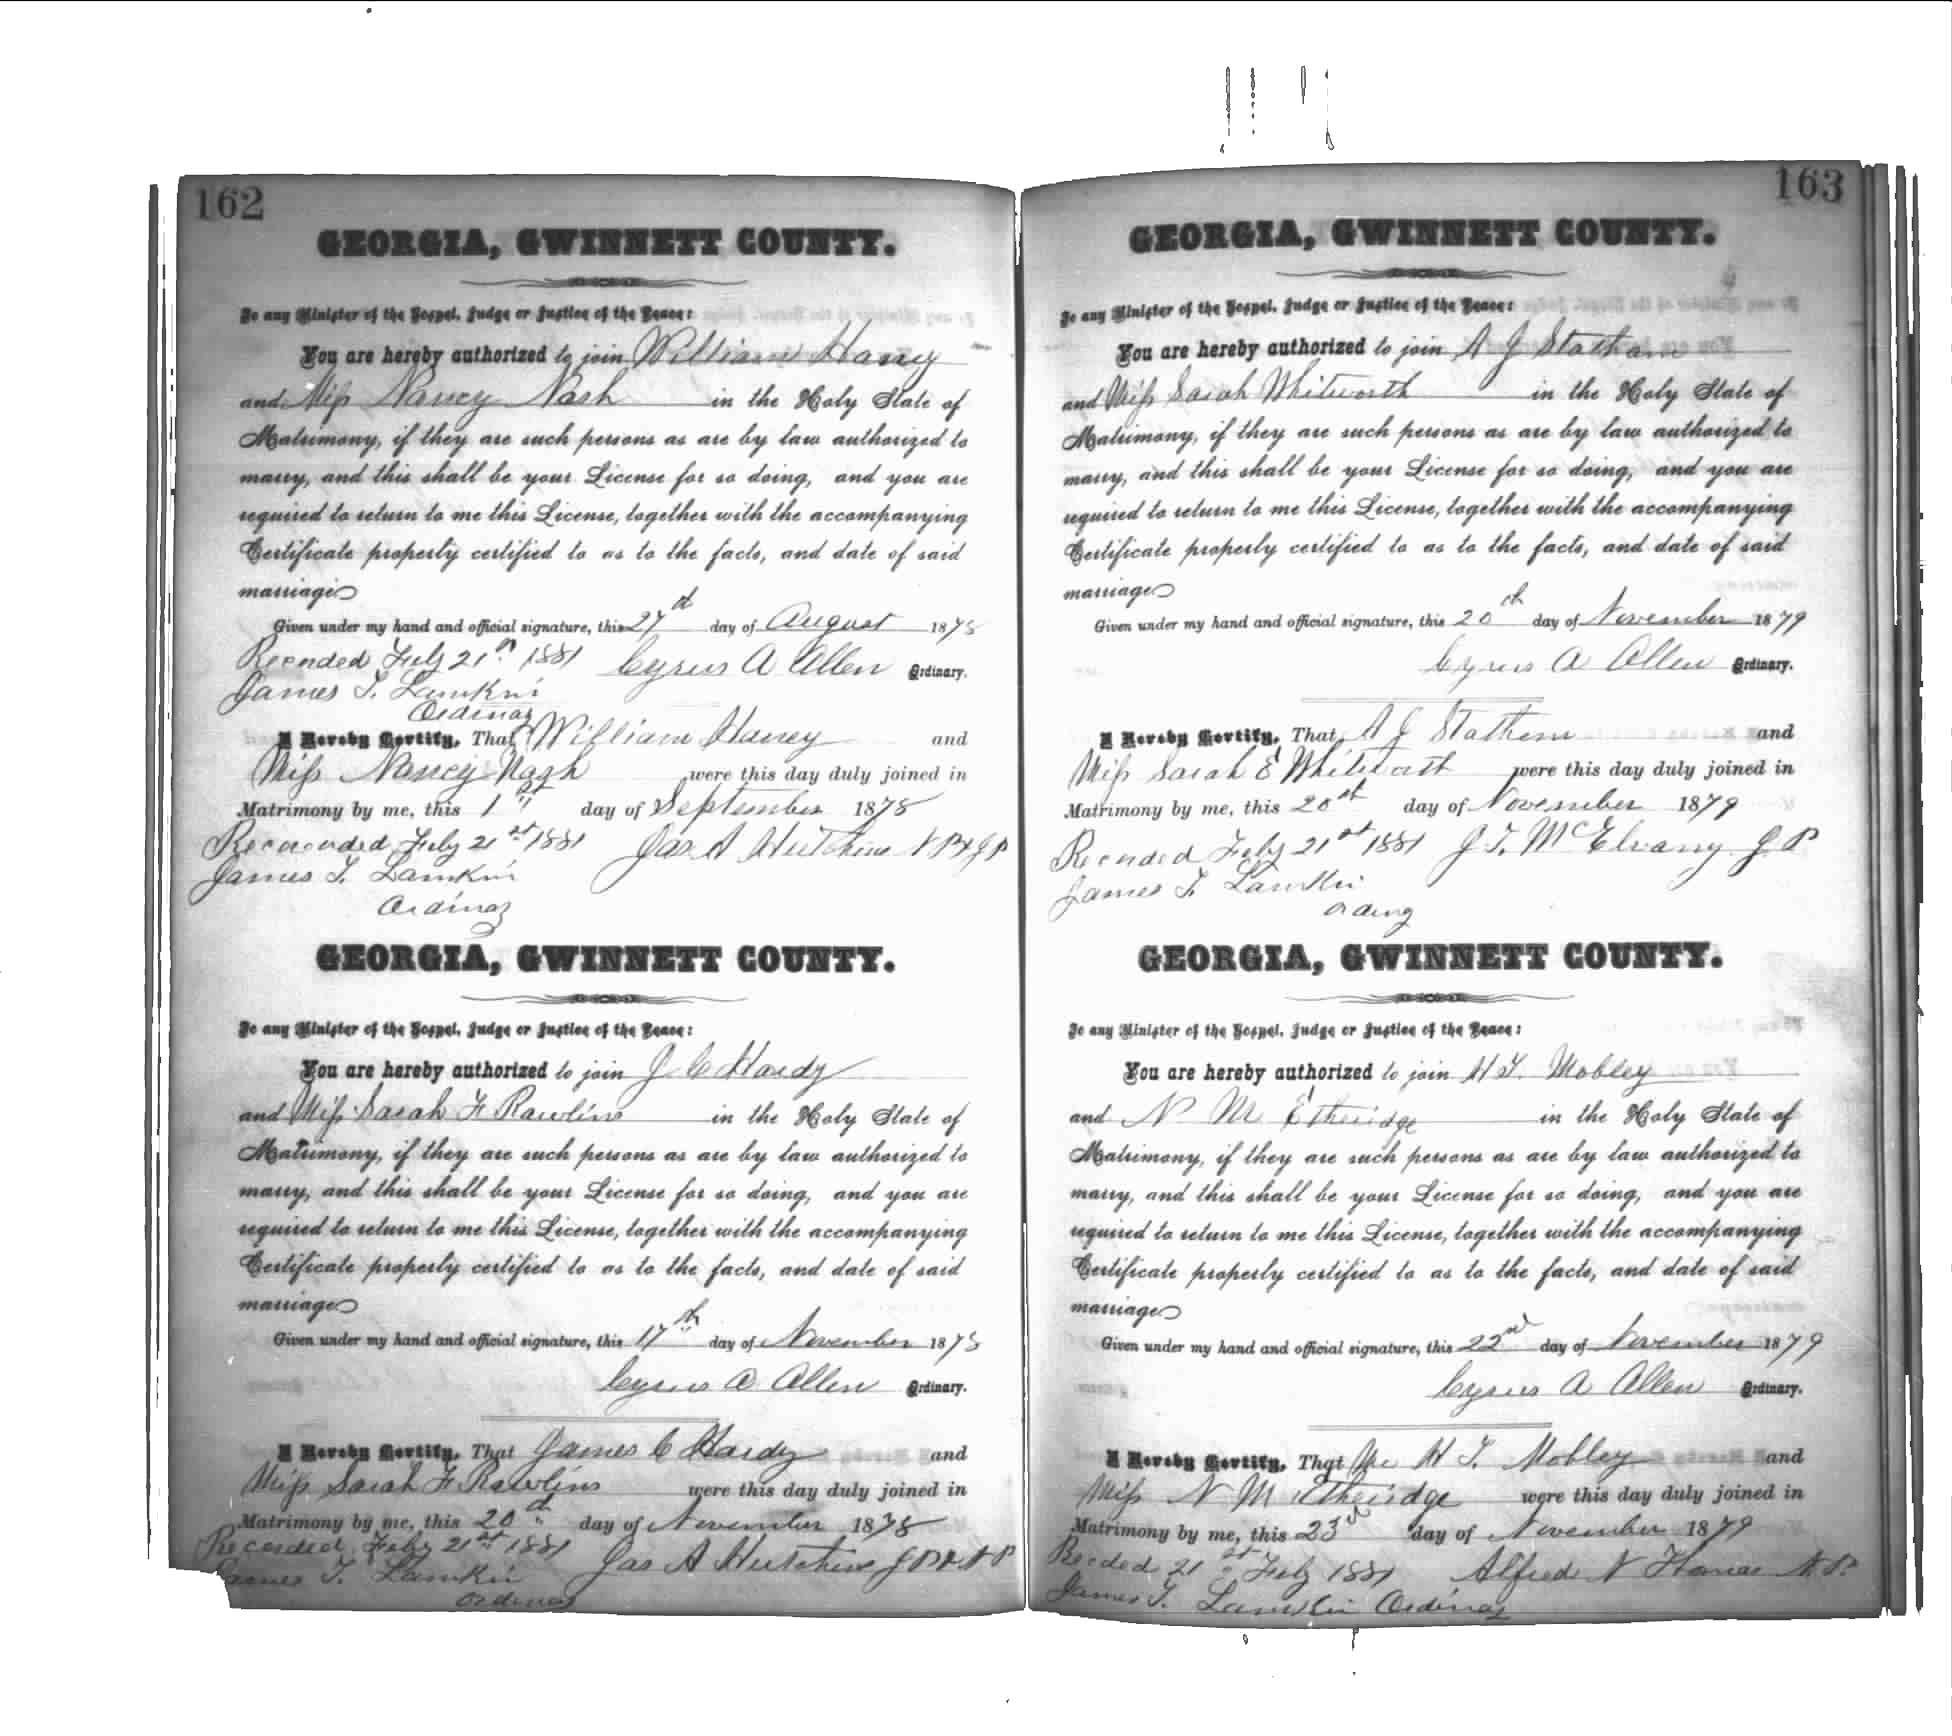 162
GEORGIA, GWINNETT COUNTY.
To any Minister of the Gospel, Judge or Justice of the Peace:
You are hereby authorized to join William Haney
and Miss Nancy Nash in the Holy State of
Matrimony, if they are such persons as are by law authorized to
marry, and this shall be your License for so doing, and you are
required to return to me this License, together with the accompanying
Certificate properly certified to as to the facts, and date of said
marriage
Given under my hand and official signature, this 27th day of August 1878
Recorded Feby 21st 1881 Cyrus A Allen Ordinary.
James T. Lamkin
Ordinary
I Hereby Certify, That William Haney and
Miss Nancy Nash were this day duly joined in
Matrimony by me, this 1st day of September 1878
Recorded Feby 21st 1881 Jas A Hutchins N P & J P
James T. Lamkin
Ordinary
GEORGIA, GWINNETT COUNTY.
To any Minister of the Gospel, Judge or Justice of the Peace:
You are hereby authorized to join J C Hardy
and Miss Sarah F Rawlins in the Holy State of
Matrimony, if they are such persons as are by law authorized to
marry, and this shall be your License for so doing, and you are
required to return to me this License, together with the accompanying
Certificate properly certified to as to the facts, and date of said
marriage
Given under my hand and official signature, this 17th day of November 1878
Cyrus A Allen Ordinary.
I Hereby Certify, That James C Hardy and
Miss Sarah F Rawlins were this day duly joined in
Matrimony by me, this 20th day of November 1878
Recorded Feby 21st 1881 Jas A Hutchins J P & N P
James T. Lamkin
Ordinary
163
GEORGIA, GWINNETT COUNTY.
To any Minister of the Gospel, Judge or Justice of the Peace:
You are hereby authorized to join A J Statham
and Miss Sarah Whitworth in the Holy State of
Matrimony, if they are such persons as are by law authorized to
marry, and this shall be your License for so doing, and you are
required to return to me this License, together with the accompanying
Certificate properly certified to as to the facts, and date of said
marriage
Given under my hand and official signature, this 20th day of November 1879
Cyrus A Allen Ordinary.
I Hereby Certify, That A J Stathem and
Miss Sarah E Whitworth were this day duly joined in
Matrimony by me, this 20st day of November 1879
Recorded Feby 21st 1881 J. T. McElvany J P
James T. Lamkin
Ordinary
GEORGIA, GWINNETT COUNTY.
To any Minister of the Gospel, Judge or Justice of the Peace:
You are hereby authorized to join H T. Mobley
and N M Etheridge in the Holy State of
Matrimony, if they are such persons as are by law authorized to
marry, and this shall be your License for so doing, and you are
required to return to me this License, together with the accompanying
Certificate properly certified to as to the facts, and date of said
marriage
Given under my hand and official signature, this 22nd day of November 1879
Cyrus A Allen Ordinary.
I Hereby Certify, That Mr H T. Mobley and
Miss N M Etheridge were this day duly joined in
Matrimony by me, this 23rd day of November 1879
Recded 21st Feby 1881 Alfred N N. P.
James T. Lamkin Ordinary